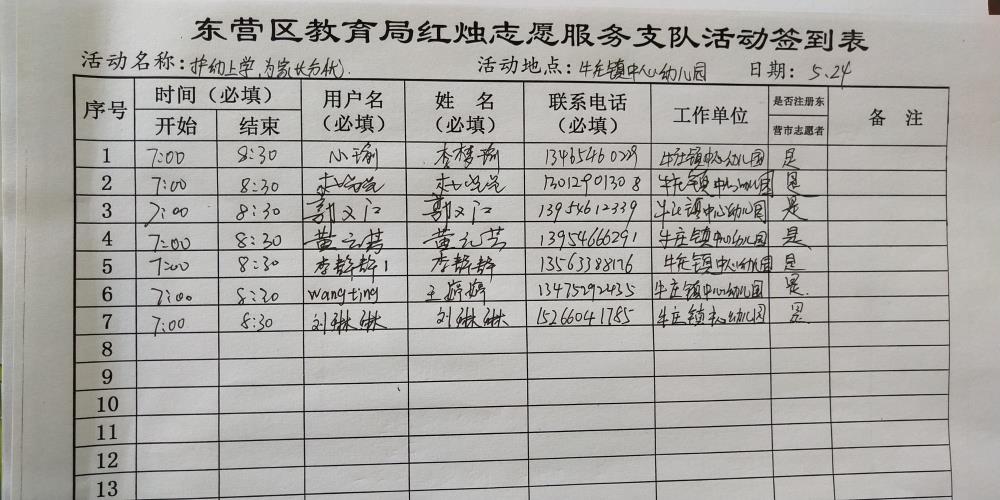 东营区教育局红烛志愿服务支队活动签到表
活动名称:护幼上学,为家长分忧. 活动地点:牛庄镇中心幼儿园 日期:5.24
序号 时间(必填) 用户名(必填) 姓名(必填) 联系电话(必填) 工作单位 是否注册东营市志愿者 备注
开始 结束
1 7:00 8:30 小瑜 李梦瑜 13465460229 牛庄镇中心幼儿园 是
2 7:00 8:30 13012901308 牛庄镇中心幼儿园 是
3 7:00 8:30 13954612339 牛庄镇中心幼儿园 是
4 7:00 8:30 黄元芸 黄元芸 13954666291 牛庄镇中心幼儿园 是
5 7:00 8:30 李静静1 李静静 13563388176 牛庄镇中心幼儿园 是
6 7:00 8:30 wangting 王婷婷 13475292435 牛庄镇中心幼儿园 是
7 7:00 8:30 刘琳琳 刘琳琳 15266041785 牛庄镇中心幼儿园 是
8
9
10
11
12
13